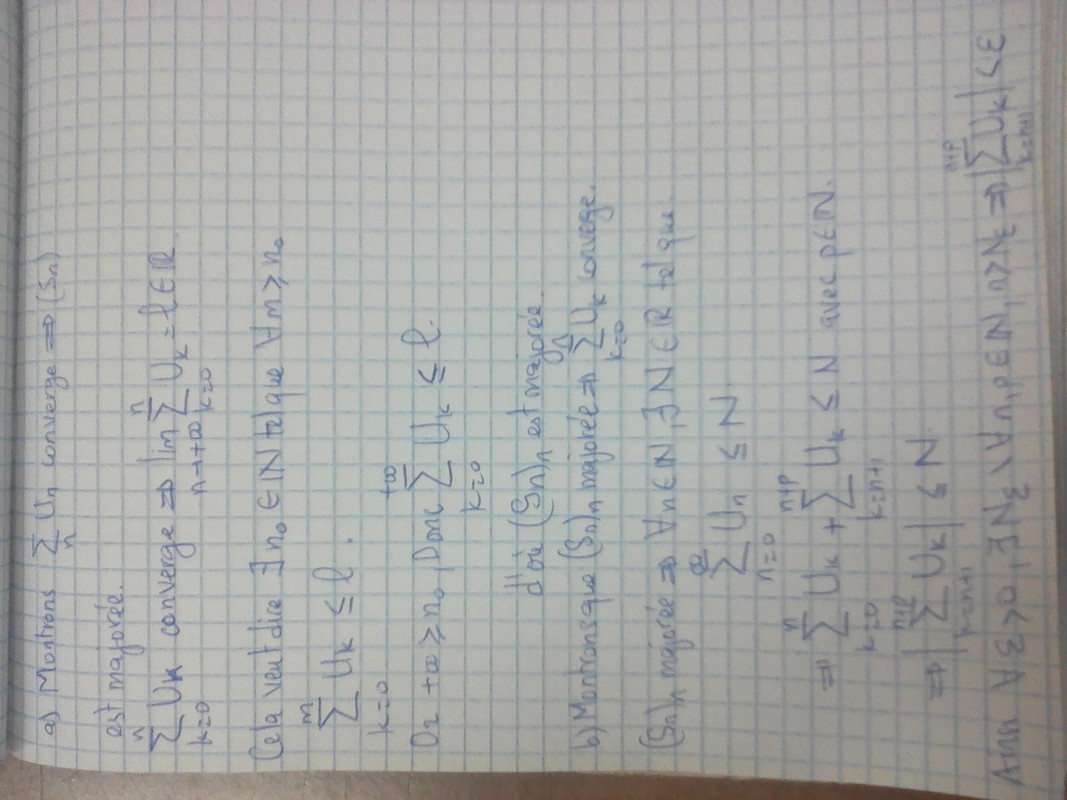 a) Montrons ∑_n Un converge ⇒ (Sn)
est majorée.
∑_{k=0}^{n} Uk converge ⇒ lim_{n→+∞} ∑_{k=0}^{n} Uk = l ∈ ℝ
Cela veut dire ∃ n₀ ∈ ℕ tel que ∀ m ≥ n₀
∑_{k=0}^{m} Uk ≤ l.
Or +∞ ≥ n₀, Donc ∑_{k=0}^{+∞} Uk ≤ l.
d'où (Sn)n est majorée.
b) Montrons que (Sn)n majorée ⇒ ∑_{k=0}^{n} Uk converge.
(Sn)n majorée ⇒ ∀n ∈ ℕ, ∃ N ∈ ℝ tel que
∑_{n=0}^{∞} Un ≤ N
⇒ ∑_{k=0}^{n} Uk + ∑_{k=n+1}^{n+p} Uk ≤ N avec p ∈ ℕ.
⇒ |∑_{k=n+1}^{n+p} Uk| ≤ N
Ainsi ∀ε>0, ∃Nε \ ∀n,p ∈ ℕ, n>Nε ⇒ |∑_{k=n+1}^{n+p} Uk| < ε